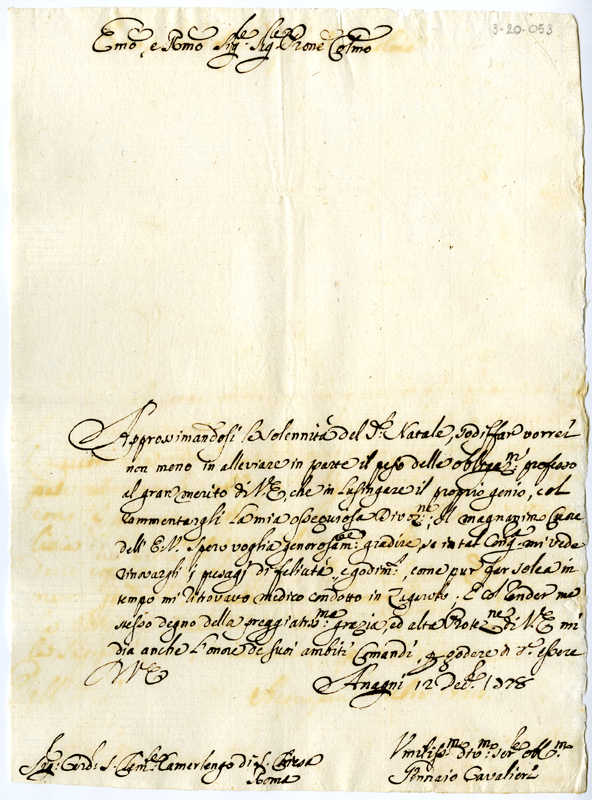 3-20-053
Emo, e Rmo Sig.re Sig.re Prone Colmo
Approssimandosi la solennità del S. Natale, sodisfar vorrei
non meno in alleviare in parte il peso delle obligaz.ni professo
al gran merito di V.E., che in lusingare il proprio genio, col
rammentargli la mia ossequiosa divoz.ne; il magnanimo Cuore
dell'E.V. spero voglia generosam.te gradire, se in tal mi vede
rinovargli i presagi di felicità, e godim.ti, come pur far solea in
tempo mi ritrovavo medico condotto in . E col render me
stesso degno della preggiatiss.ma grazia, ed alta Protez.ne di V.E. mi
dia anche l'onore de suoi ambiti Comandi, godere di essere
V.E.
Anagni 12 Dec.
Sig. Card. Camerlengo di S. Chiesa
Roma
Umiliss.mo Dev.mo ser.re obl.mo
Gennaio Cavalieri